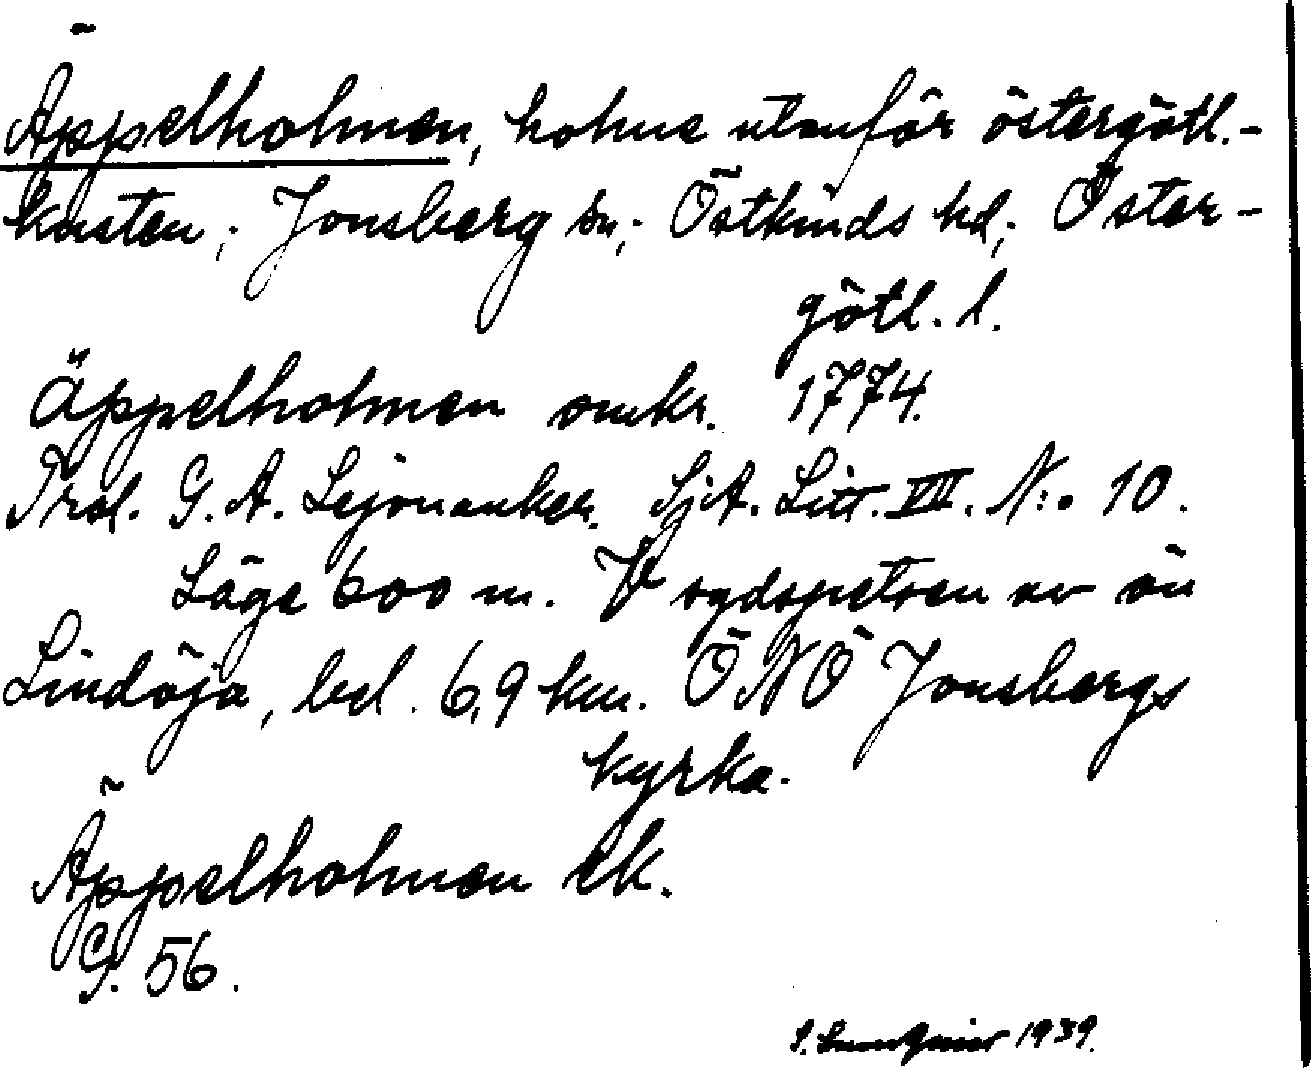 Äppelholmen, holme utanför östergötl.-
kusten; Jonsberg sn; Östkinds hd; Öster-
götl. l.
Äppelholmen omkr. 1774.
Trol. G. A. Lejonanker. SjA. Litt. VIII. N:o 10.
Läge 600 m. V sydspetsen av ön
Lindöja, bel. 6,9 km. ÖNÖ Jonsbergs
kyrka.
Äppelholmen ek.
G. 56.
1939.